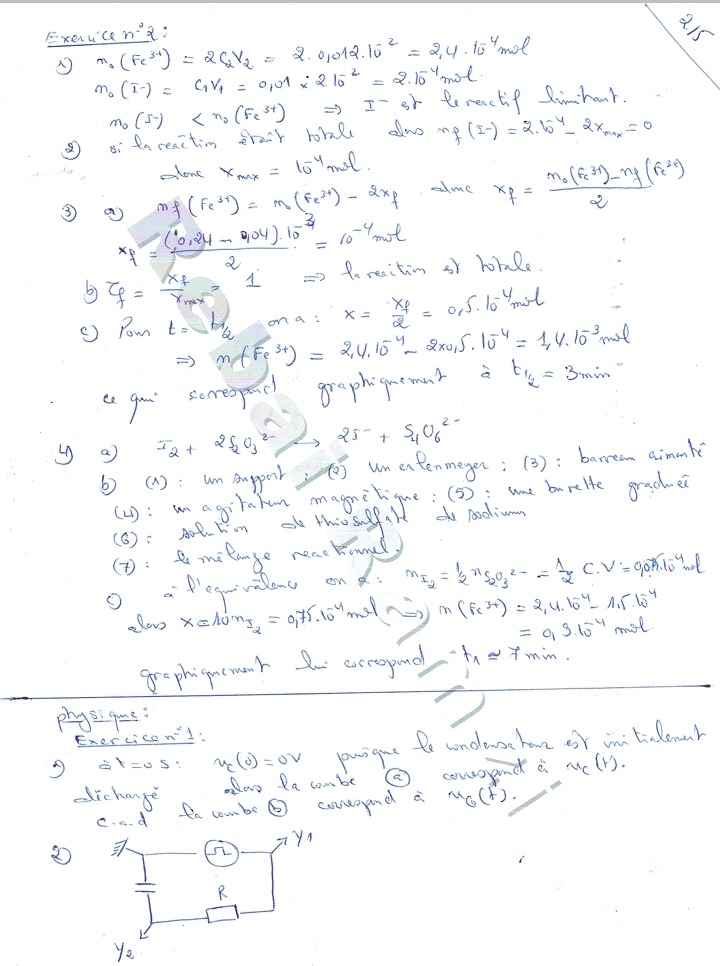 2/5
Exercice n°2 :
1) n₀(Fe³⁺) = 2C₂V₂ = 2.0,012.10⁻² = 2,4.10⁻⁴ mol
n₀(I⁻) = C₁V₁ = 0,01 × 2.10⁻² = 2.10⁻⁴ mol.
n₀(I⁻) < n₀(Fe³⁺) ⇒ I⁻ est le reactif limitant.
2) si la reaction était totale alors nf(I⁻) = 2.10⁻⁴ - 2xmax = 0
donc xmax = 10⁻⁴ mol.
3) a) nf(Fe³⁺) = n₀(Fe³⁺) - 2xf donc xf = (n₀(Fe³⁺) - nf(Fe³⁺))/2
xf = ((0,24 - 0,04).10⁻³)/2 = 10⁻⁴ mol
b) τf = xf/xmax = 1 ⇒ la reaction est totale.
c) Pour t = t1/2 on a : x = xf/2 = 0,5.10⁻⁴ mol
⇒ n(Fe³⁺) = 2,4.10⁻⁴ - 2x0,5.10⁻⁴ = 1,4.10⁻³ mol
ce qui correspond graphiquement à t1/2 = 3min
4) a) I₂ + 2S₂O₃²⁻ → 2I⁻ + S₄O₆²⁻
b) (1) : un support ; (2) un erlenmeyer ; (3) : barreau aimanté
(4) : un agitateur magnétique ; (5) : une burette graduée
(6) : solution de thiosulfate de sodium
(7) : le mélange reactionnel.
c) à l'equivalence on a : nI₂ = ½ nS₂O₃²⁻ = ½ C.V = 0,075.10⁻⁴ mol
alors x = 10nI₂ = 0,75.10⁻⁴ mol ⇒ n(Fe³⁺) = 2,4.10⁻⁴ - 1,5.10⁻⁴
= 0,9.10⁻⁴ mol.
graphiquement lui correspond t₁ ≃ 7min.
physique :
Exercice n°1 :
1) à t=0s : uc(0) = 0V puisque le condensateur est initialement
déchargé alors la courbe (a) correspond à uc(t).
c.a.d la courbe (b) correspond à uG(t).
2)
Y1
R
Y2
Rebai Rahim